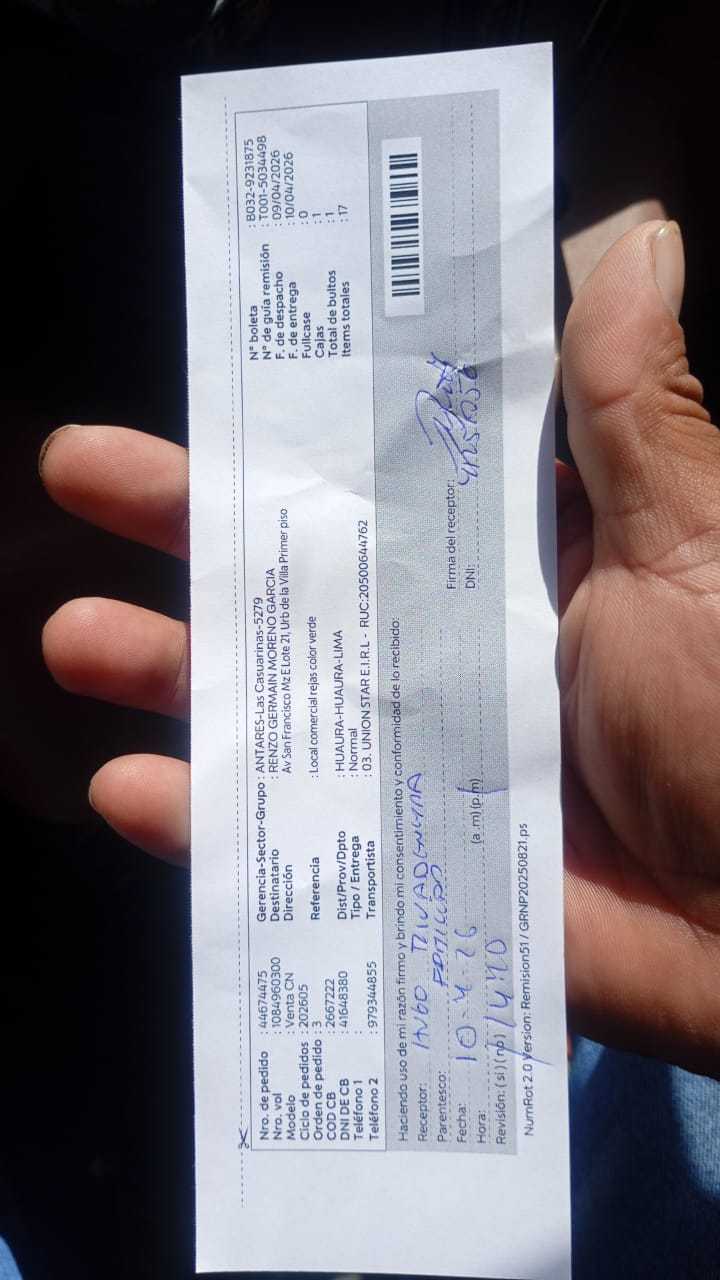 Nro. de pedido : 44674475
Nro. vol : 1084960300
Modelo : Venta CN
Ciclo de pedidos : 202605
Orden de pedido : 3
COD CB : 2667222
DNI DE CB : 41648380
Teléfono 1 :
Teléfono 2 : 979344855
Gerencia-Sector-Grupo : ANTARES-Las Casuarinas-5279
Destinatario : RENZO GERMAIN MORENO GARCIA
Dirección Av San Francisco Mz E Lote 21, Urb de la Villa Primer piso
Referencia : Local comercial rejas color verde
Dist/Prov/Dpto : HUAURA-HUAURA-LIMA
Tipo / Entrega : Normal
Transportista : 03. UNION STAR E.I.R.L - RUC:20500644762
N° boleta : B032-9231875
N° de guía remisión : T001-5034498
F. de despacho : 09/04/2026
F. de entrega : 10/04/2026
Fullcase : 0
Cajas : 1
Total de bultos : 1
Items totales : 17
Haciendo uso de mi razón firmo y brindo mi consentimiento y conformidad de lo recibido:
Receptor: HUGO
Parentesco:
Fecha: 10-4-26
Hora: (a.m)(p.m)
Revisión: (si)(no)
Firma del receptor:
DNI:
NumRot 2.0 Version: Remision51 / GRNP20250821.ps